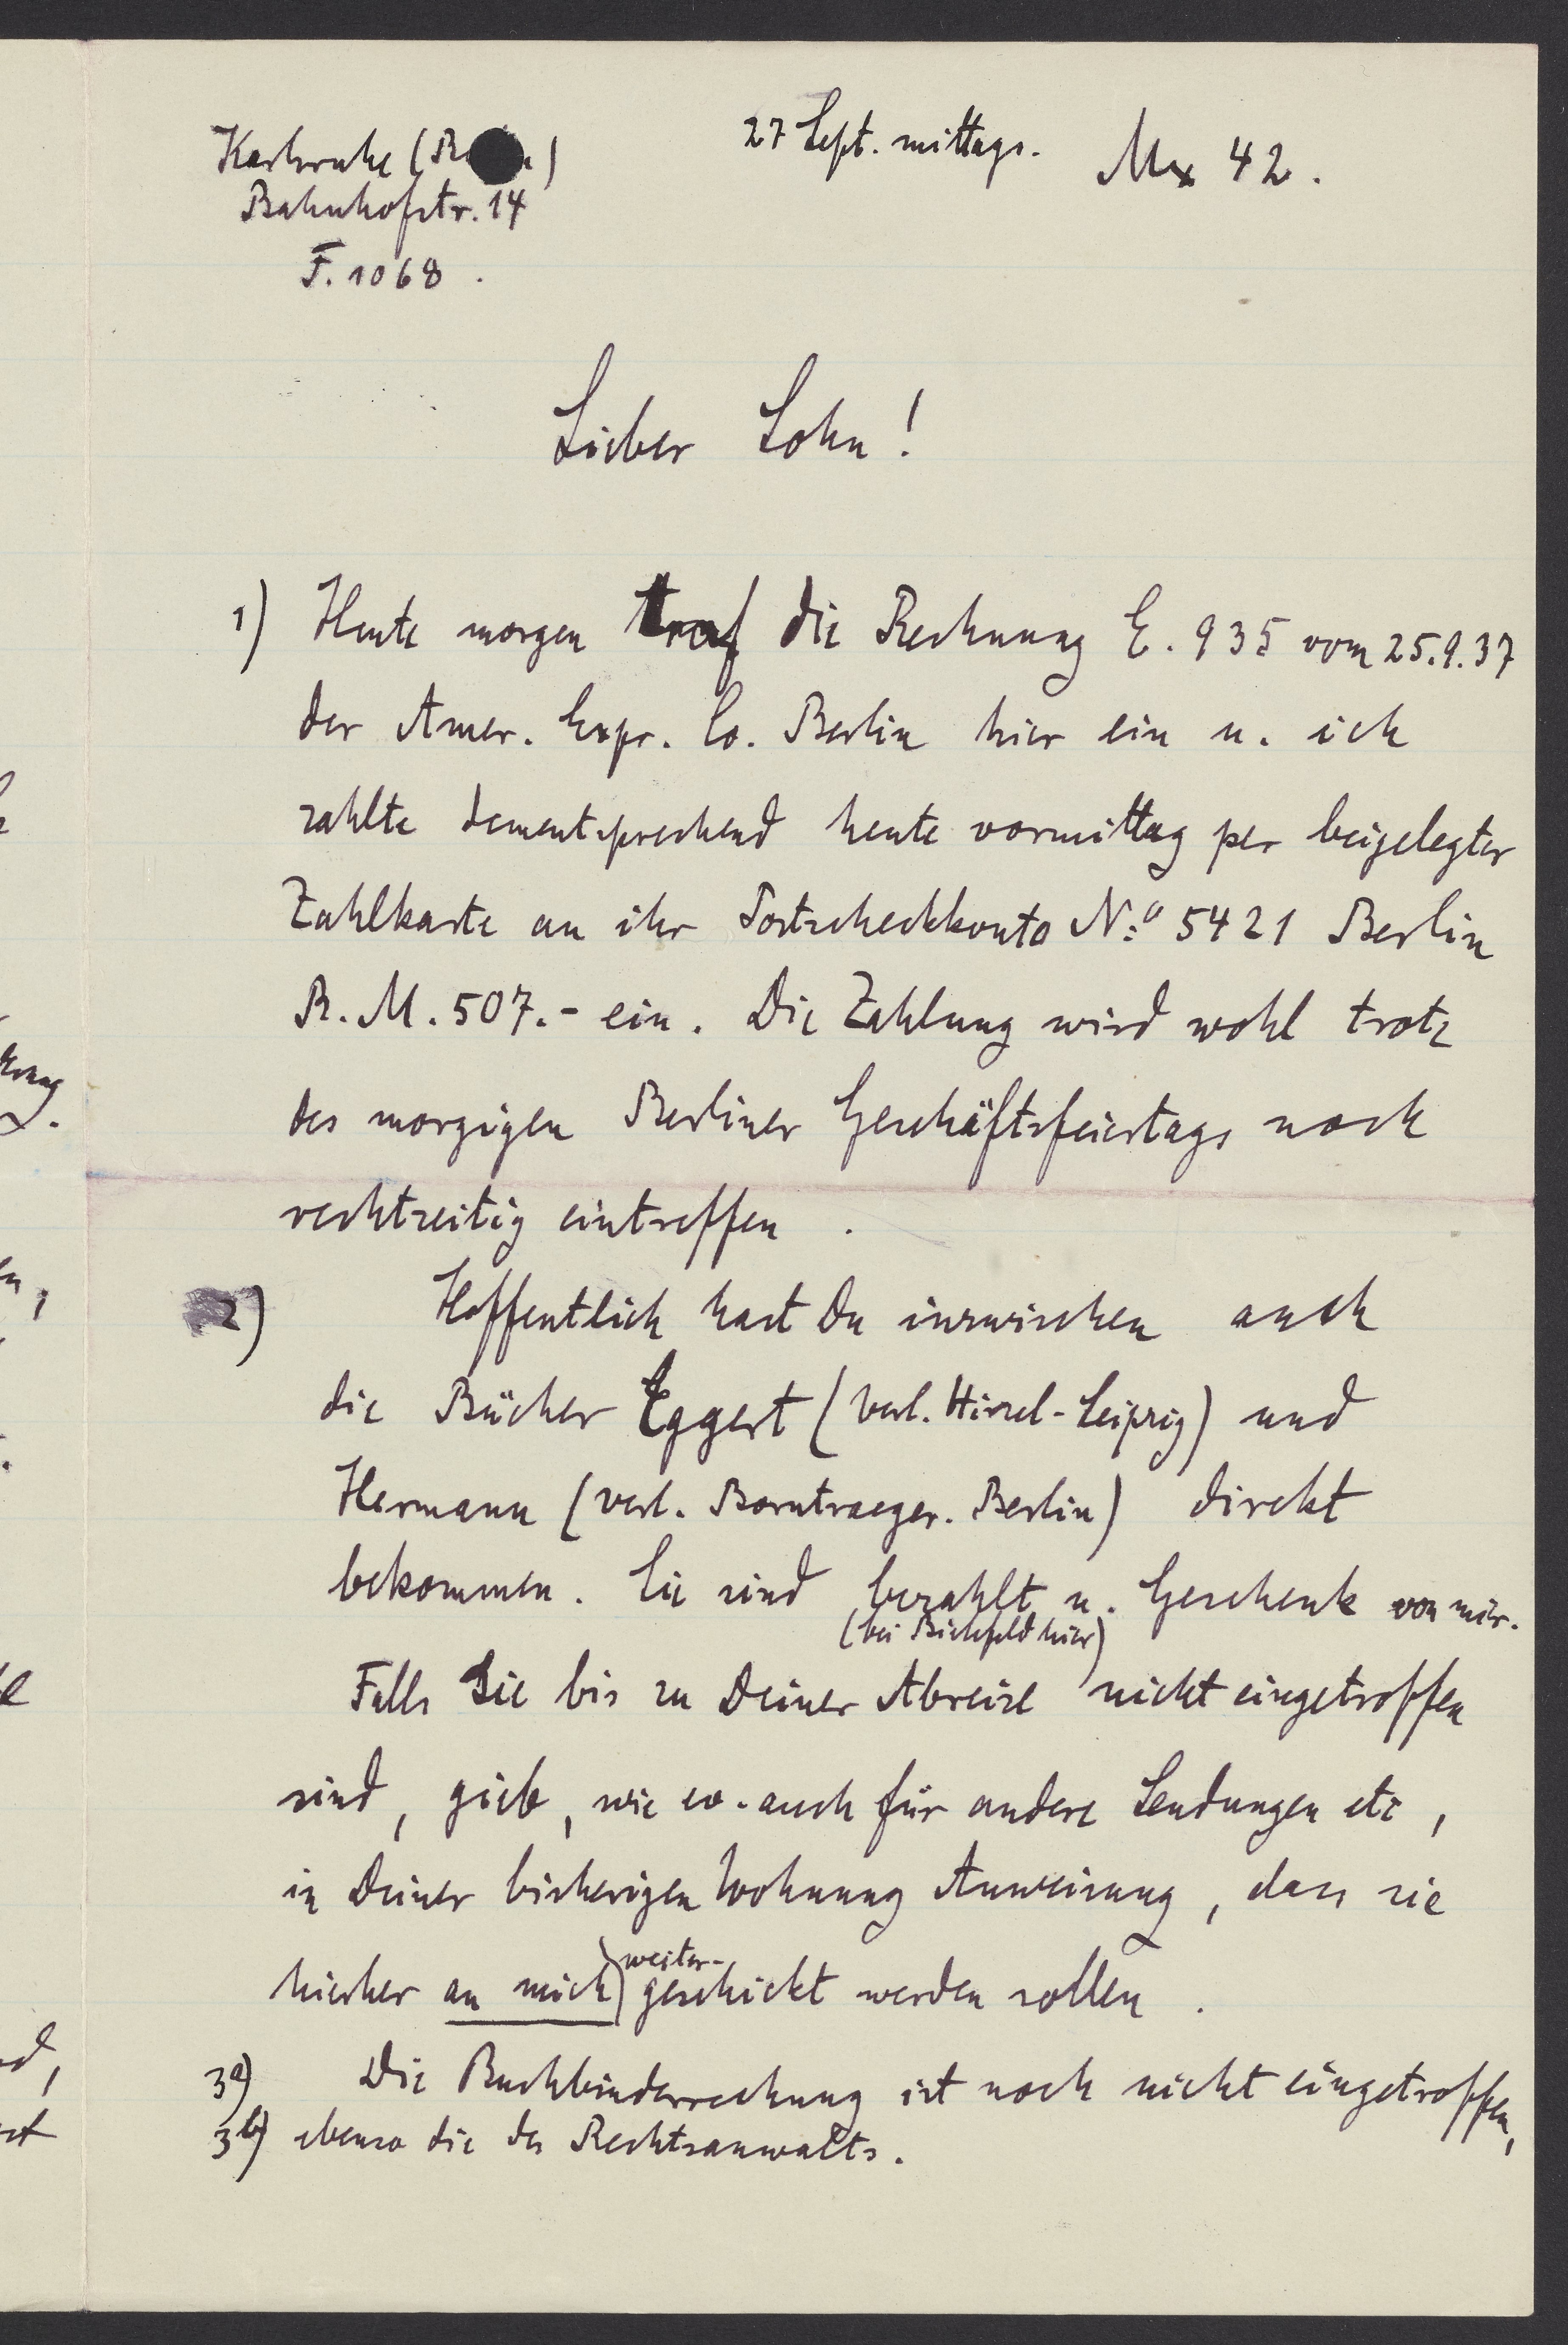 Karlsruhe (B
Bahnhofstr. 14
F. 1068.
27 Sept. mittags. Mx 42.
Lieber Sohn!
1) Heute morgen traf die Rechnung E. 935 vom 25.9.37
der Amer. Expr. Co. Berlin hier ein u. ich
zahlte dementsprechend heute vormittag per beigelegter
Zahlkarte an ihr Postscheckkonto No 5421 Berlin
R.M. 507.- ein. Die Zahlung wird wohl trotz
des morgigen Berliner Geschäftsfeiertags noch
rechtzeitig eintreffen.
2) Hoffentlich hast Du inzwischen auch
die Bücher Eggert (Verl. Hirzel-Leipzig) und
Hermann (Verl. Borntraeger. Berlin) direkt
bekommen. Sie sind bezahlt u. Geschenk von mir.
(bei Bielefeld hier)
Falls Sie bis zu Deiner Abreise nicht eingetroffen
sind, gieb, wie ev. auch für andere Sendungen etc,
in Deiner bisherigen Wohnung Anweisung, dass sie
hierher an mich weiter-
geschickt werden sollen.
3a) Die Buchbinderrechnung ist noch nicht eingetroffen,
3b) ebenso die des Rechtsanwalts.